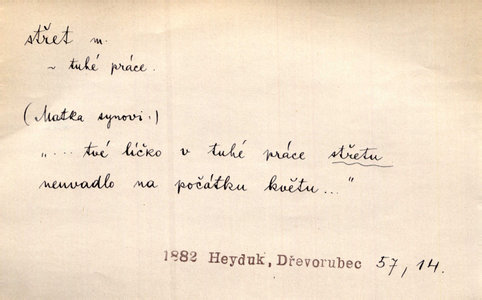 střet m.
~ tuhé práce.
(Matka synovi.)
"... tvé líčko v tuhé práce střetu
neuvadlo na počátku květu..."
1882 Heyduk, Dřevorubec 57, 14.